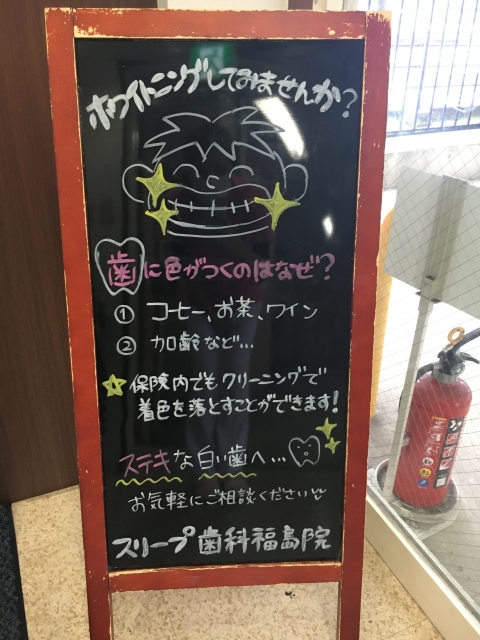 ホワイトニングしてみませんか?
歯に色がつくのはなぜ?
① コーヒー、お茶、ワイン
② 加齢など…
保険内でもクリーニングで
着色を落とすことができます!
ステキな白い歯へ…
お気軽にご相談ください
スリープ歯科福島院